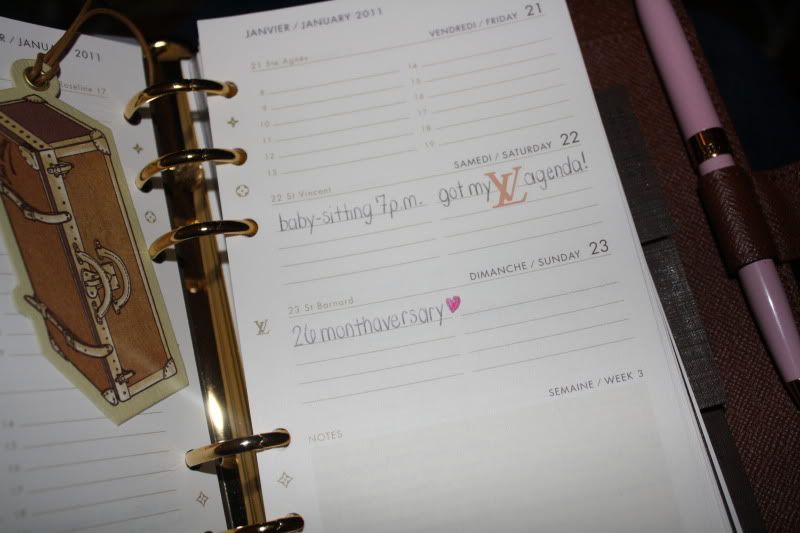 JANVIER / JANUARY 2011
R / JANUARY 2011
Roseline 17
VENDREDI / FRIDAY 21
21 Ste Agnès
8
9
10
11
12
13
14
15
16
17
18
19
SAMEDI / SATURDAY 22
22 St Vincent
baby-sitting 7p.m. got my LV agenda!
DIMANCHE / SUNDAY 23
23 St Barnard
26 monthaversary
LV
SEMAINE / WEEK 3
NOTES
14
15
16
17
18